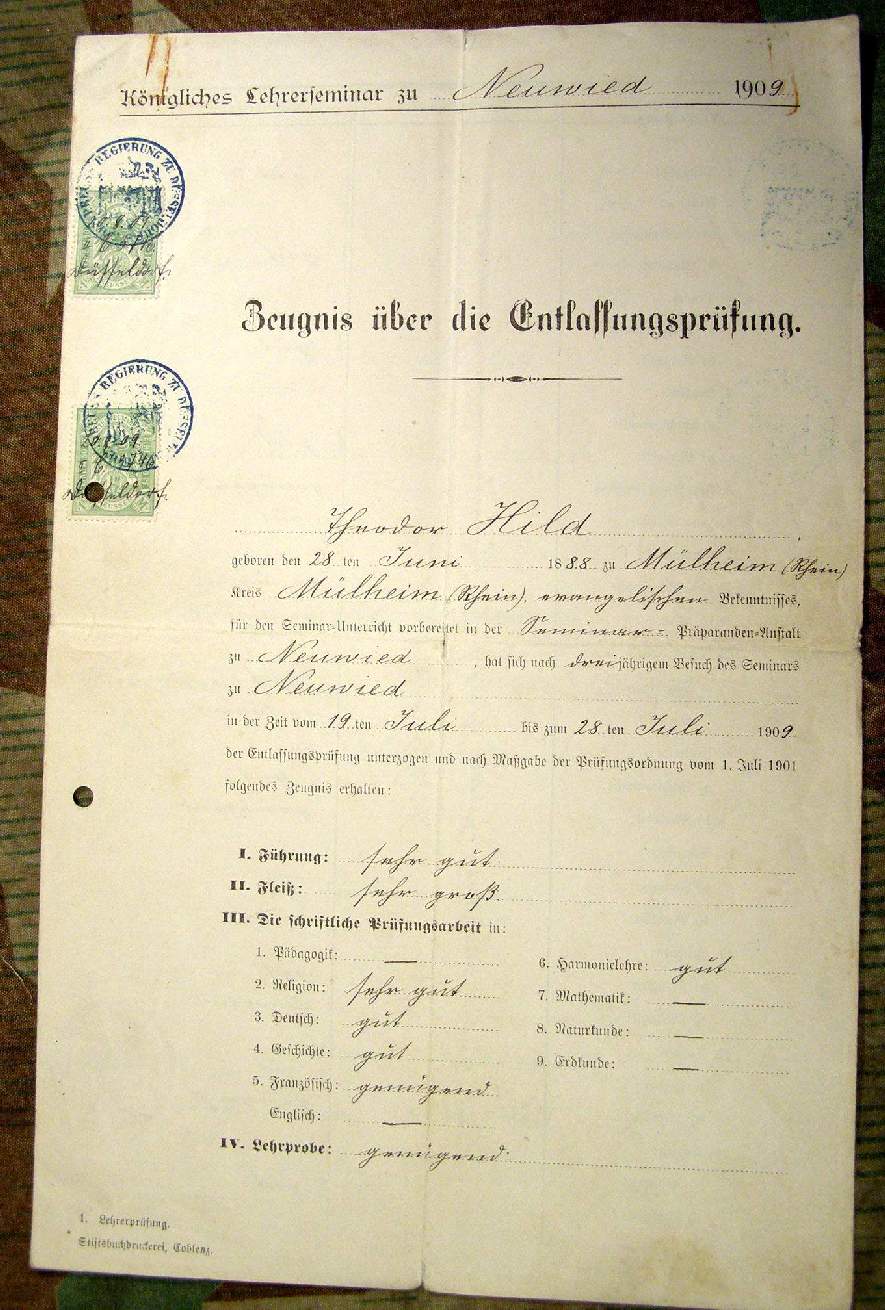 Königliches Lehrerseminar zu Neuwied 1909
REGIERUNG ZU DÜSSELDORF
Düsseldorf.
Zeugnis über die Entlassungsprüfung.
REGIERUNG ZU DÜSSEL
Düsseldorf.
Theodor Hild,
geboren den 28 ten Juni 1888 zu Mülheim (Rhein)
Kreis Mülheim (Rhein), evangelischen Bekenntnisses,
für den Seminar-Unterricht vorbereitet in der Seminar- Präparanden-Anstalt
zu Neuwied, hat sich nach dreijährigem Besuch des Seminars
zu Neuwied
in der Zeit vom 19 ten Juli bis zum 28 ten Juli 1909
der Entlassungsprüfung unterzogen und nach Maßgabe der Prüfungsordnung vom 1. Juli 1901
folgendes Zeugnis erhalten:
I. Führung: sehr gut
II. Fleiß: sehr groß.
III. Die schriftliche Prüfungsarbeit in:
1. Pädagogik: —
2. Religion: sehr gut
3. Deutsch: gut
4. Geschichte: gut
5. Französisch: genügend
Englisch: —
6. Harmonielehre: gut
7. Mathematik: —
8. Naturkunde: —
9. Erdkunde: —
IV. Lehrprobe: genügend.
1. Lehrerprüfung.
Stiftsbuchdruckerei, Coblenz.